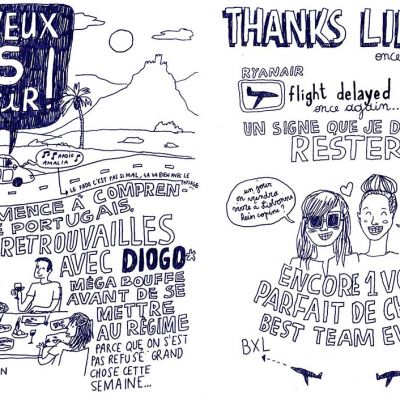 EUX
S
UR!
RADIO
AMALIA
LE FADO C'EST PAS SI MAL, ÇA VA BIEN AVEC LE PAYSAGE
MENCE À COMPREN
E PORTUGAIS.
RETROUVAILLES
AVEC DIOGO
MÉGA BOUFFE
AVANT DE SE
METTRE
AU RÉGIME
PARCE QUE ON S'EST
PAS REFUSÉ GRAND
CHOSE CETTE
SEMAINE...
N
THANKS LI
once
RYANAIR
flight delayed
once again...
UN SIGNE QUE JE D
RESTER
un jour
on viendra
vivre à Lisbonne
hein copine?
ENCORE 1 VO
PARFAIT DE C
BEST TEAM EV
BXL